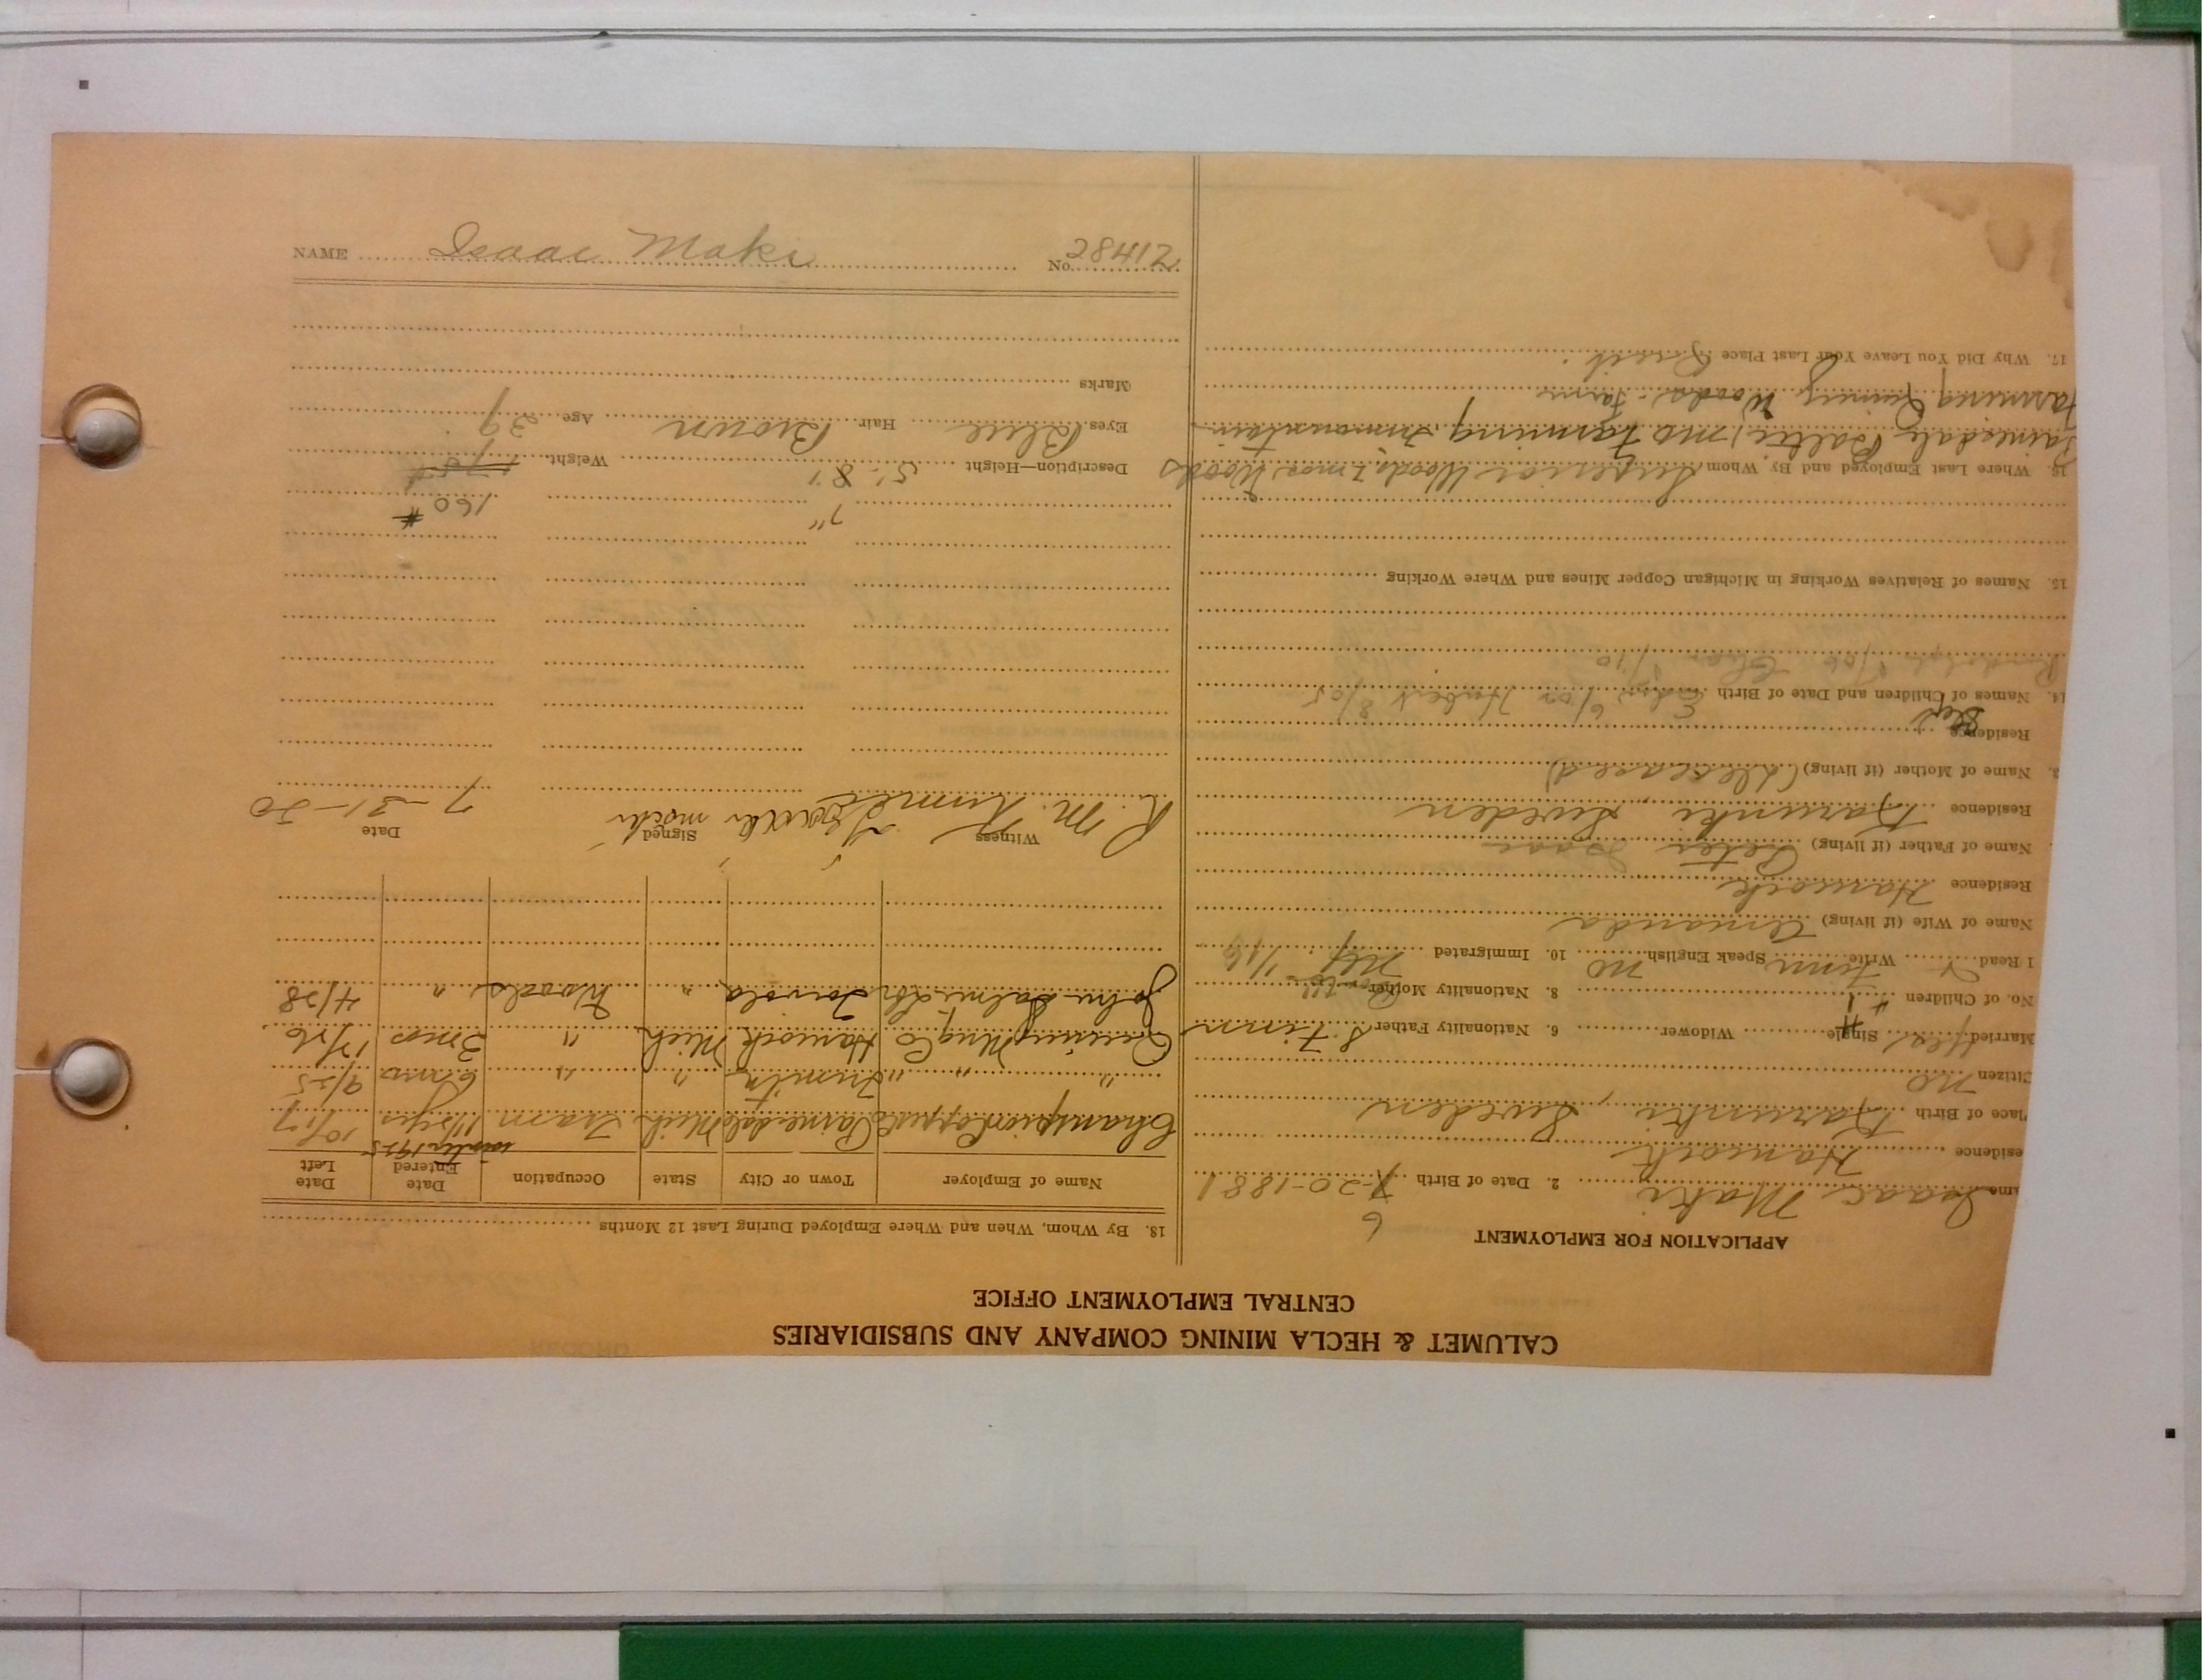 CALUMET & HECLA MINING COMPANY AND SUBSIDIARIES
CENTRAL EMPLOYMENT OFFICE
APPLICATION FOR EMPLOYMENT
6
ame Isaac Maki 2. Date of Birth 7-20-1881
esidence Hancock
Place of Birth Karunki, Sweden
Citizen no
Married Yes Single Widower 6. Nationality Father S. Finn
No. of Children 4 8. Nationality Mother
1 Read Write Finn Speak English no 10. Immigrated
Name of Wife (if living) Amanda
Residence Hancock
Name of Father (if living) Peter Isaac
Residence Karunki, Sweden
3. Name of Mother (if living) (deceased)
Residence
14. Names of Children and Date of Birth 6/02 Hubert 8/05
15. Names of Relatives Working in Michigan Copper Mines and Where Working
16. Where Last Employed and By Whom Superior Woods, mos. Woods
Painesdale Baltic, mo Farming
Farming Quincy Woods - Farm
17. Why Did You Leave Your Last Place Quit.
18. By Whom, When and Where Employed During Last 12 Months
Name of Employer Town or City State Occupation Date Entered Date Left
Champion Copper Co Painesdale Mich Tram 10/17
winter 1925
" " " " 6 mos 9/25
Quincy Mng Co Hancock Mich " 3 mos 12/26
John Toivola " Woods " 4/28
R. M. Witness Signed Date 7-31-20
7" 160 #
Description—Height 5' 8" Weight
Eyes Blue Hair Brown Age 39
Marks
NAME Isaac Maki No. 28412